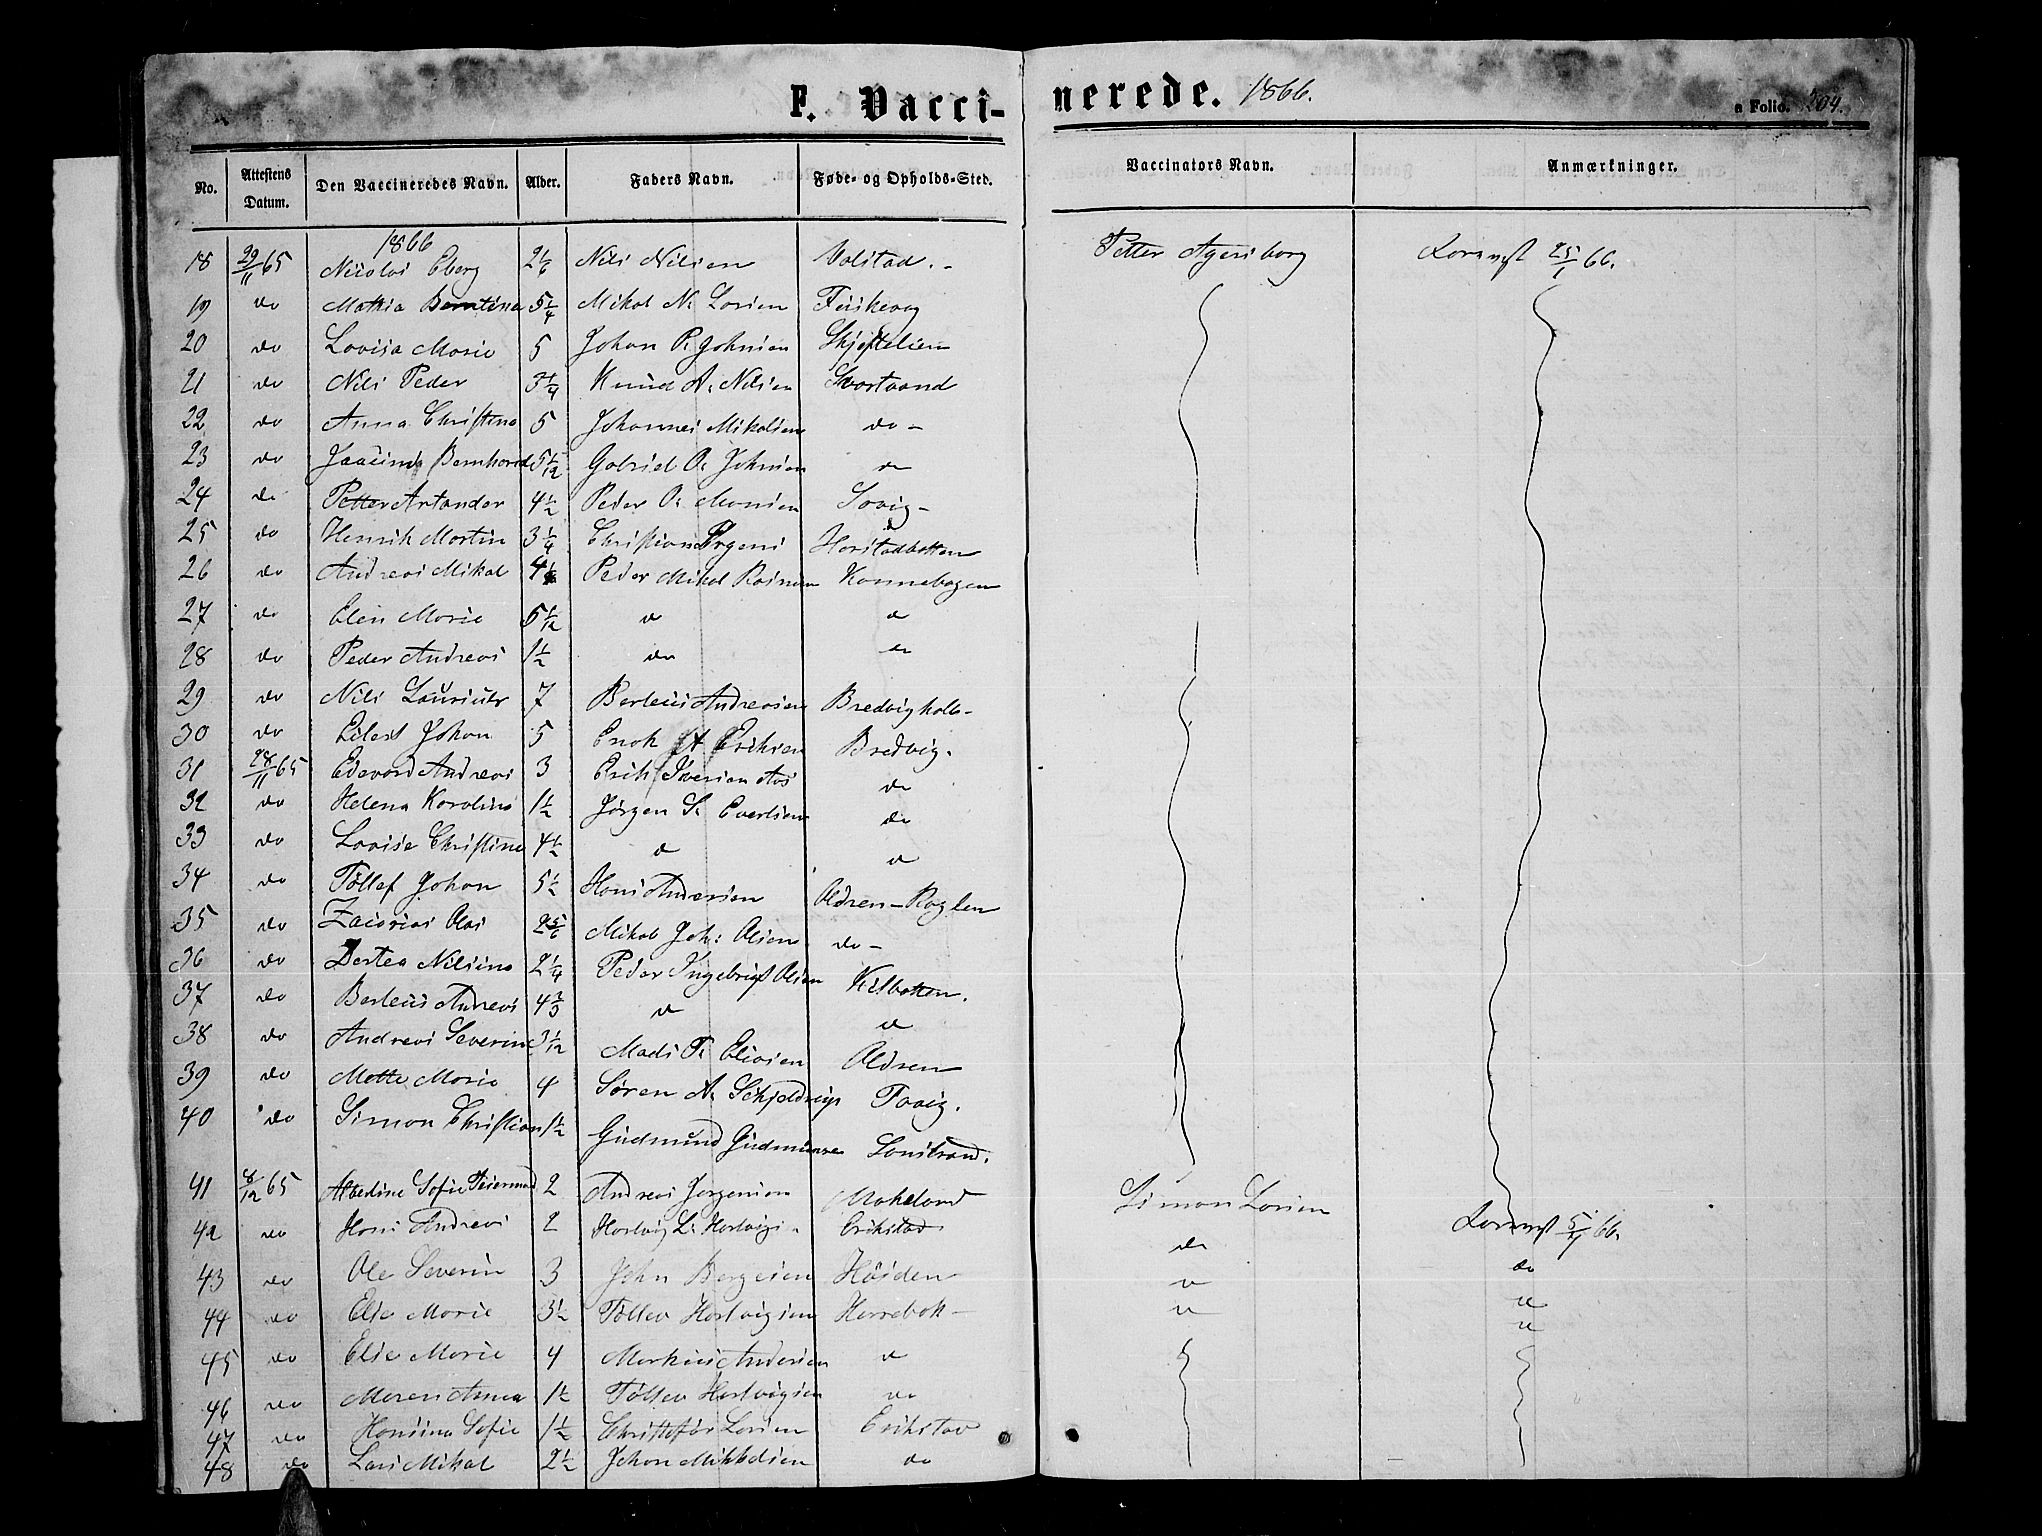 F. Vaccinerede. 1866.
a Folio. 204.
No. Attestens Datum. Den Vaccineredes Navn. Alder. Faders Navn. Føde- og Opholds-Sted. Vaccinators Navn. Anmærkninger.
1866
18 29/11 65 Nicolai Eberg 2 1/6 Nils Nilsen Valstad. Petter Agersborg 25/1 66.
19 do Mathia Berntina 5 1/4 Mikal N. Larsen Fiiskevag
20 do Lovisa Marie 5 Johan P. Johnsen Skjeftelien
21 do Nils Peder 3 1/4 Knud A. Nilsen Svartvand
22 do Anna Christina 5 Johannes Mikalsen do
23 do Bernhard 5 1/12 Gabriel O. Johnsen do
24 do Petter Artander 4 1/2 Peder O. Monsen Sovig
25 do Henrik Martin 3 1/4 Christian Harstadbotten
26 do Andreas Mikal 4 Peder Mikal Konnebogen
27 do Elen Marie 5 1/12 do do
28 do Peder Andreas 1 1/2 do do
29 do Nils Lauritz 7 Berteus Andreasen Bredvigholb
30 do Eilert Johan 5 Enok A Eriksen Bredvig.
31 28/11 65 Edevard Andreas 3 Erik Iversen Aas do
32 do Helena Karolina 1 1/2 Jørgen S. Evertsen do
33 do Lovise Christine 4 1/2 do do
34 do Tøllef Johan 5 1/2 Hans Andersen Aldren
35 do Zacarias Olai 2 5/6 Mikal Joh: Olsen do
36 do Dortea Nilsina 2 1/4 Peder Ingebrigt Olsen Kilbotten.
37 do Berteus Andreas 4 2/3 do do
38 do Andreas Severin 3 1/12 Mads P. Eliasen Aldren
39 do Mette Marie 4 Søren A. Schjeldrup Tovig.
40 do Simon Christian 1 1/2 Gudmund Gudmunse Sandstrand.
41 8/12 65 Albertine Sofie 2 Andreas Jørgensen Makeland Simon Larsen
42 do Hans Andreas 2 Hartvig L. Hartvigs. Erikstad do 66.
43 do Ole Severin 3 John Borgesen Høiden do do
44 do Else Marie 3 1/2 Tøllev Hartvigsen Harrebak do do
45 do Else Marie 4 Markus Andersen do
46 do Maren Anna 1 1/2 Tøllev Hartvigsen do
47 do Hansina Sofie 1 1/2 Christofor Larsen Erikstad
48 do Lars Mikal 2 1/2 Johan Mikkelsen do